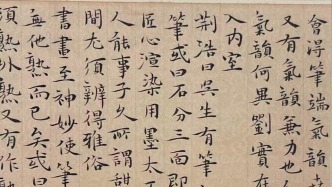 會得筆端氣韻
又有氣韻兼力也
氣韻何異劉實在
入內室
荊浩曰吳生有筆
筆或曰石分三面即
匠心渲染用墨太工
人能事子久所謂甜
間尤須辨得雅俗
書畫至神妙使筆
無他熟而已矣或曰
須熟外熟又有作熟